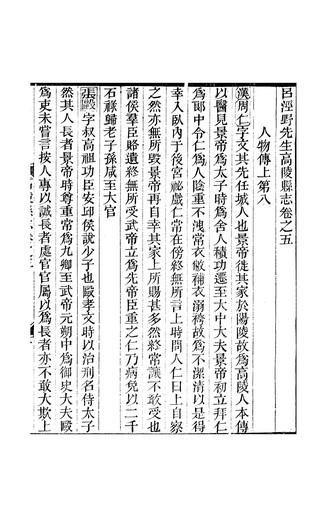 呂涇野先生高陵縣志卷之五
人物傳上第八
漢周仁字文其先任城人也景帝徙其家於陽陵故爲高陵人本傳
以醫見景帝爲太子時爲舍人積功遷至大中大夫景帝初立拜仁
爲郎中令仁爲人陰重不洩常衣敝補衣溺袴故爲不潔清以是得
幸入臥內于後宮祕戲仁常在傍終無所言上時問人仁曰上自察
之然亦無所毀景帝再自幸其家上所賜甚多然終常讓不敢受也
諸侯羣臣賂遺終無所受武帝立爲先帝臣重之仁乃病免以二千
石祿歸老子孫咸至大官
張敺字叔高祖功臣安邱侯說少子也敺孝文時以治刑名侍太子
然其人長者景帝時尊重常爲九卿至武帝元朔中爲御史大夫敺
爲吏未嘗言按人專以誠長者處官官屬以爲長者亦不敢大欺上